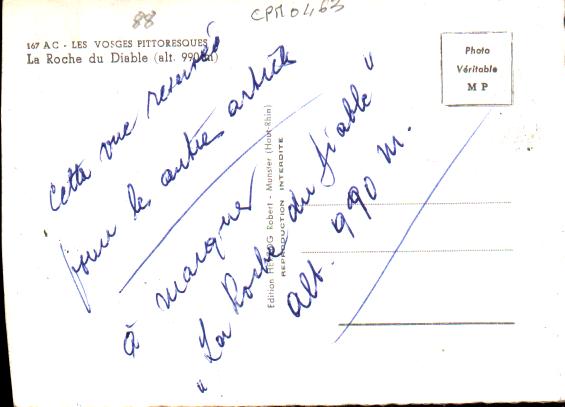 88
CPM 0463
167 AC - LES VOSGES PITTORESQUES
La Roche du Diable (alt. 990m)
Photo
Véritable
M P
Cette vue reservée
pour les autres articles
à marquer
"La Roche du Diable"
alt. 990 m.
Edition HERZOG Robert - Munster (Haut-Rhin)
REPRODUCTION INTERDITE